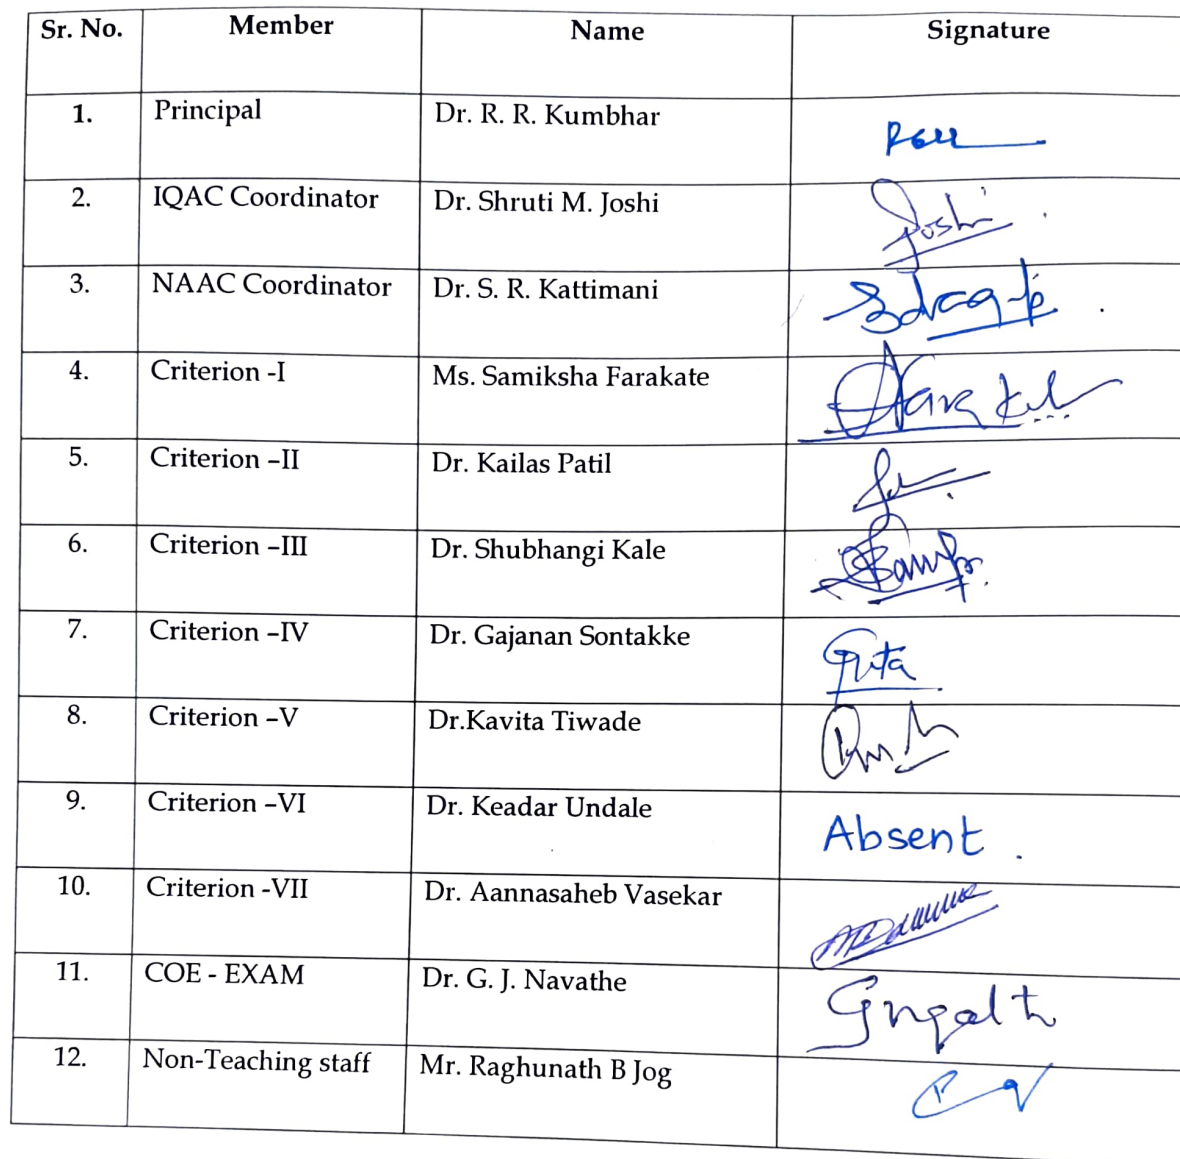 Sr. No. Member Name Signature
1. Principal Dr. R. R. Kumbhar
2. IQAC Coordinator Dr. Shruti M. Joshi Joshi
3. NAAC Coordinator Dr. S. R. Kattimani
4. Criterion -I Ms. Samiksha Farakate
5. Criterion –II Dr. Kailas Patil
6. Criterion –III Dr. Shubhangi Kale
7. Criterion –IV Dr. Gajanan Sontakke
8. Criterion –V Dr.Kavita Tiwade
9. Criterion –VI Dr. Keadar Undale Absent .
10. Criterion -VII Dr. Aannasaheb Vasekar
11. COE - EXAM Dr. G. J. Navathe
12. Non-Teaching staff Mr. Raghunath B Jog